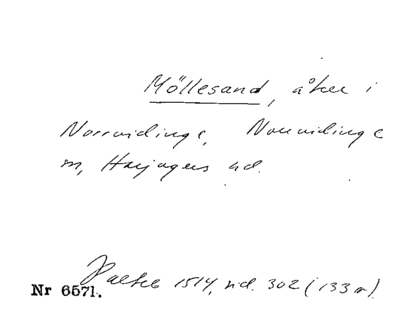 Möllesand, åker i
Norrvidinge, Norrvidinge
sn, Harjagers hd.
1514, s. 302 (133 r).
Nr 6571.